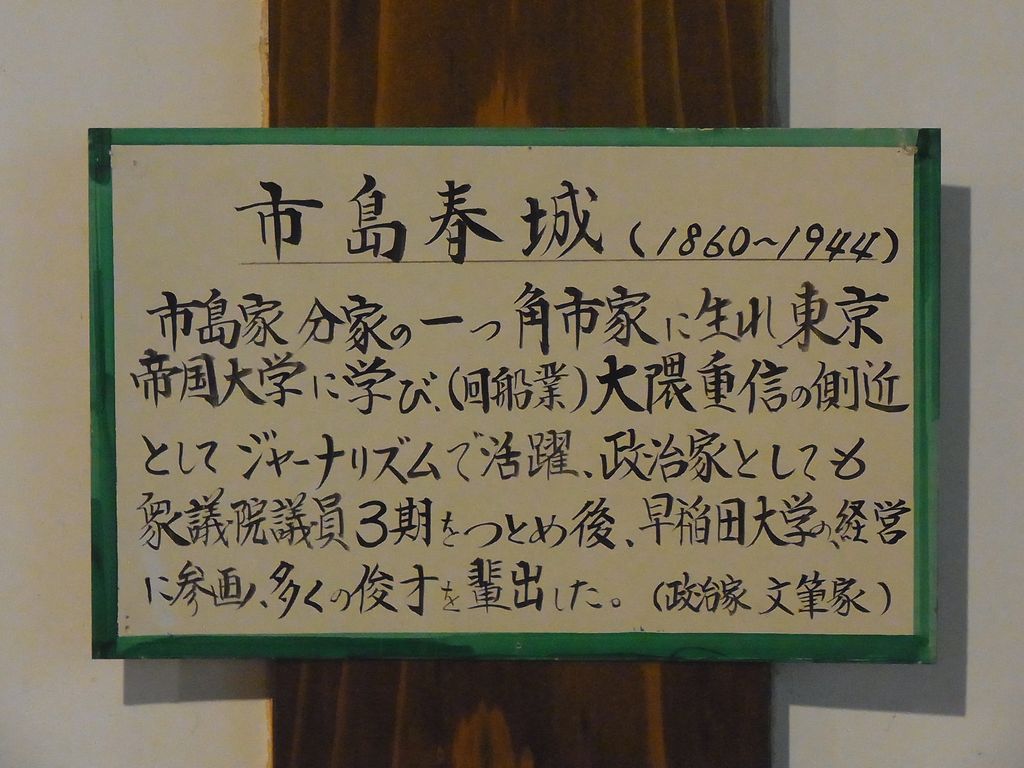 市島春城(1860~1944)
市島家分家の一つ角市家に生れ東京
帝国大学に学び、(回船業)大隈重信の側近
としてジャーナリズムで活躍、政治家としても
衆議院議員3期をつとめ後、早稲田大学の、経営
に参画、多くの俊才を輩出した。(政治家 文筆家)